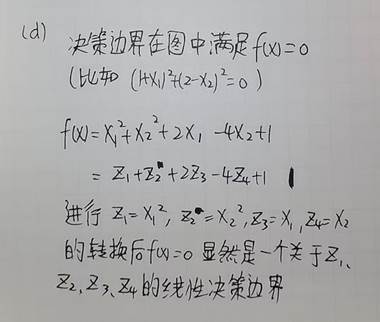 (d) 决策边界在图中满足f(x)=0
(比如 (1+X₁)²+(2-X₂)²=0)
f(x)=X₁²+X₂²+2X₁-4X₂+1
=Z₁+Z₂+2Z₃-4Z₄+1
进行 Z₁=X₁², Z₂=X₂², Z₃=X₁, Z₄=X₂
的转换后f(x)=0 显然是一个关于Z₁、
Z₂、Z₃、Z₄的线性决策边界